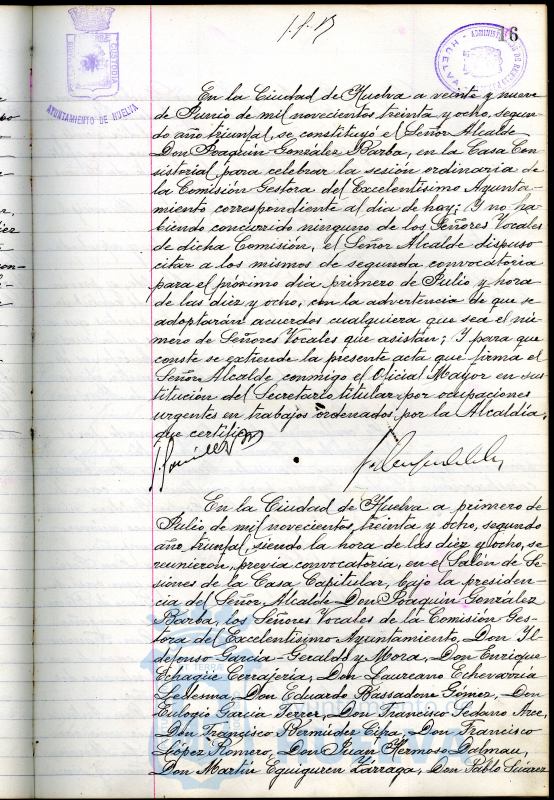 16
AYUNTAMIENTO DE HUELVA
En la Ciudad de Huelva a veinte y nueve
de Junio de mil novecientos treinta y ocho, segun-
do año triunfal, se constituyó el Señor Alcalde
Don Joaquín González Barba, en la Casa Con
sistorial para celebrar la sesión ordinaria de
la Comisión Gestora del Excelentísimo Ayunta-
miento correspondiente al dia de hoy; Y no ha-
biendo concurrido ninguno de los Señores Vocales
de dicha Comisión, el Señor Alcalde dispuso
citar a los mismos de segunda convocatoria
para el próximo dia primero de Julio y hora
de las diez y ocho, con la advertencia de que se
adoptarán acuerdos cualquiera que sea el nú-
mero de Señores Vocales que asistan; Y para que
conste se extiende la presente acta que firma el
Señor Alcalde conmigo el Oficial Mayor en sus
titución del Secretario titular por ocupaciones
urgentes en trabajos ordenados por la Alcaldía,
que certifico
En la Ciudad de Huelva a primero de
Julio de mil novecientos treinta y ocho, segundo
año triunfal, siendo la hora de las diez y ocho, se
reunieron, previa convocatoria, en el Salón de Se-
siones de la Casa Capitular, bajo la presiden-
cia del Señor Alcalde Don Joaquín González
Barba, los Señores Vocales de la Comisión Ges-
tora del Excelentísimo Ayuntamiento, Don Il-
defonso García-Geraldo y Mora, Don Enrique
Echague Cerrajería, Don Laureano Echevarría
Ledesma, Don Eduardo Bassadone Gómez, Don
Eulogio García Ferrer, Don Francisco Sedano Arce,
Don Francisco Bermúdez Don Francisco
López Romero, Don Juan Hermoso Dalmau,
Don Martín Eguiguren Zárraga, Don Pablo Suárez